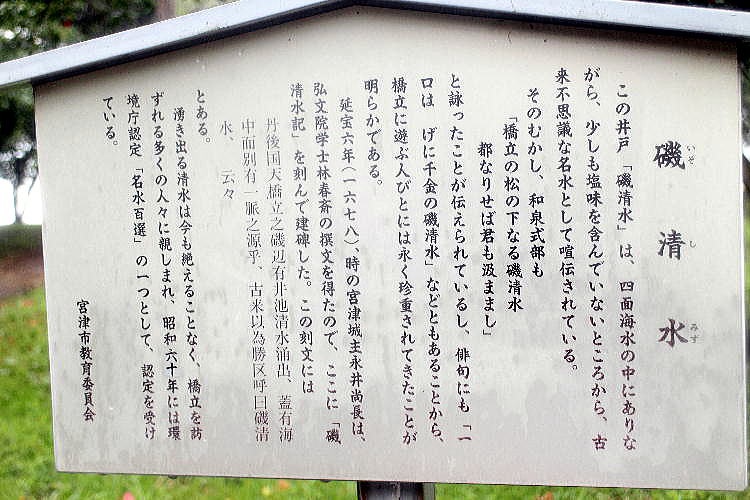 磯清水
いそしみず
この井戸「磯清水」は、四面海水の中にありな
がら、少しも塩味を含んでいないところから、古
来不思議な名水として喧伝されている。
そのむかし、和泉式部も
「橋立の松の下なる磯清水
都なりせば君も汲ままし」
と詠ったことが伝えられているし、俳句にも「一
口は げに千金の磯清水」などともあることから、
橋立に遊ぶ人びとには永く珍重されてきたことが
明らかである。
延宝六年(一六七八)、時の宮津城主永井尚長は、
弘文院学士林春斎の撰文を得たので、ここに「磯
清水記」を刻んで建碑した。この刻文には
丹後国天橋立之磯辺有井池清水涌出、蓋有海
中而別有一脈之源乎、古来以為勝区呼曰磯清
水、云々
とある。
湧き出る清水は今も絶えることなく、橋立を訪
ずれる多くの人々に親しまれ、昭和六十年には環
境庁認定「名水百選」の一つとして、認定を受け
ている。
宮津市教育委員会